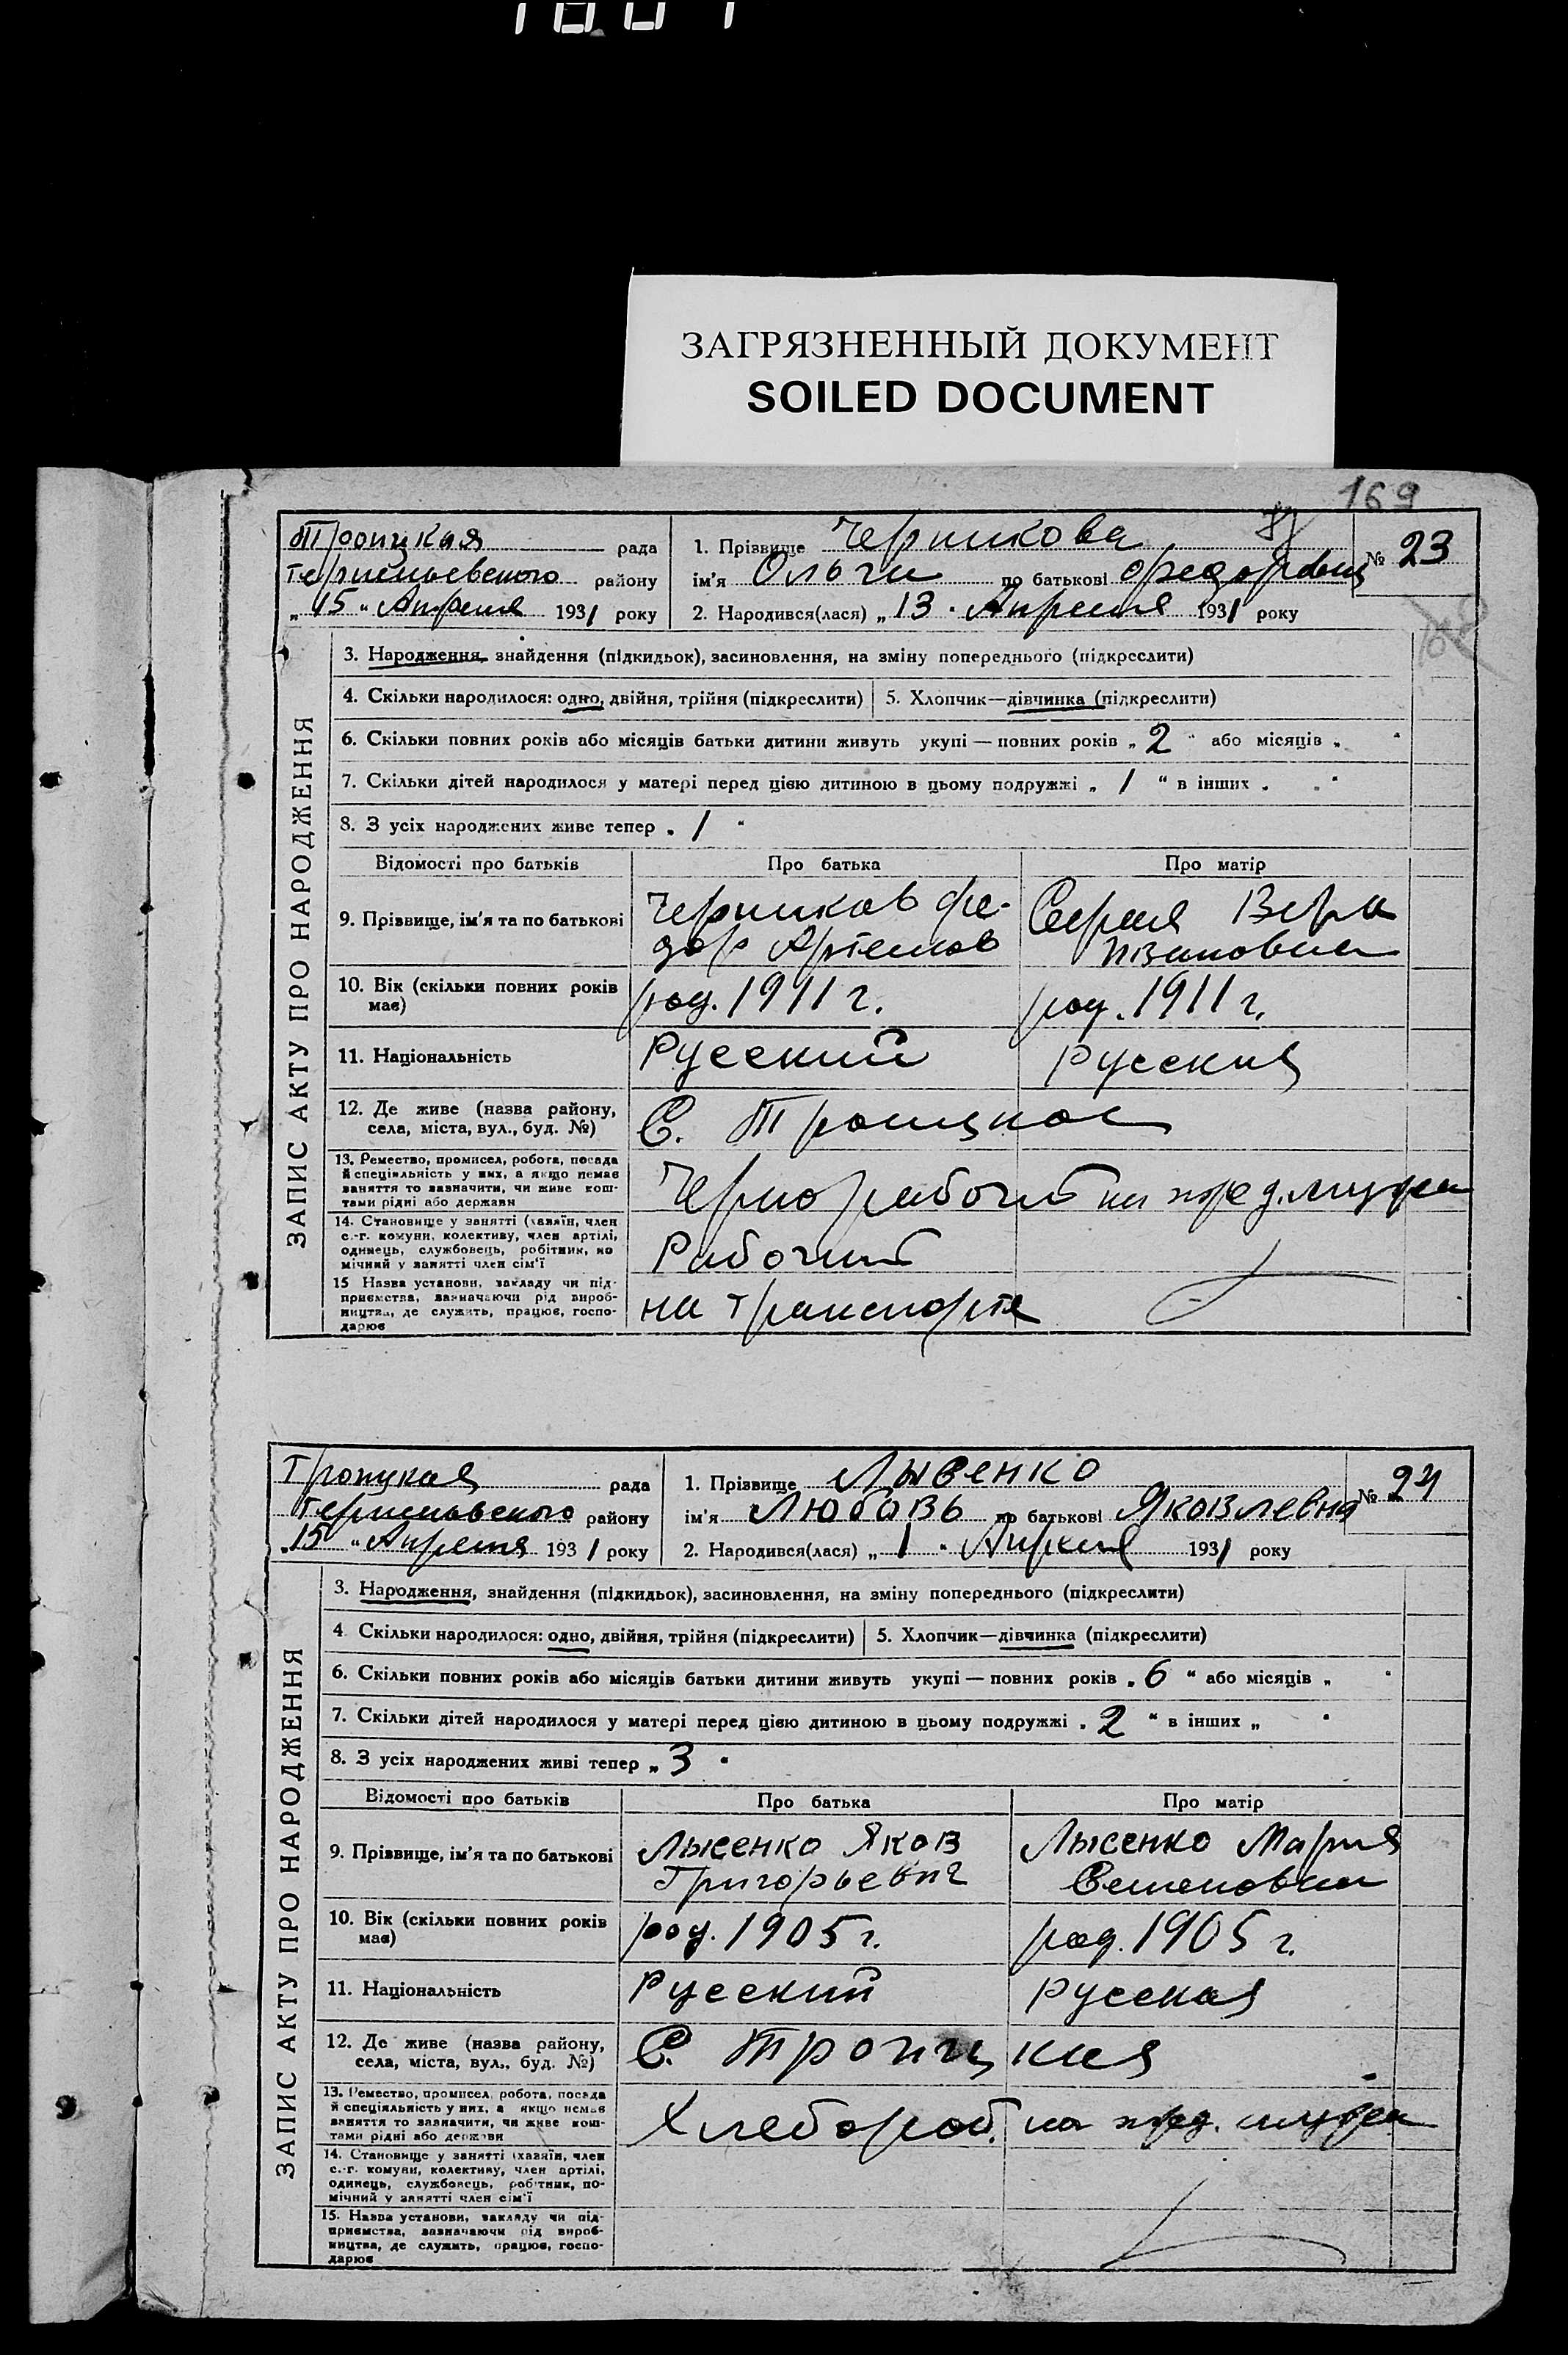 ЗАГРЯЗНЕННЫЙ ДОКУМЕНТ
SOILED DOCUMENT
169
Троицкая рада
района
„15" Апреля 1931 року
1. Прізвище Черникова
ім'я Ольга по батькові Федоровна
2. Народився(лася) „13" Апреля 1931 року
№ 23
ЗАПИС АКТУ ПРО НАРОДЖЕННЯ
3. Народження, знайдення (підкидьок), засиновлення, на зміну попереднього (підкреслити)
4. Скільки народилося: одно, двійня, трійня (підкреслити) 5. Хлопчик—дівчинка (підкреслити)
6. Скільки повних років або місяців батьки дитини живуть укупі — повних років „2" або місяців „ "
7. Скільки дітей народилося у матері перед цією дитиною в цьому подружжі „1" в інших „ "
8. З усіх народжених живе тепер „1"
Відомості про батьків Про батька Про матір
9. Прізвище, ім'я та по батькові
Черников Фе-
дор Артемов
Вера
Ивановна
10. Вік (скільки повних років
має)
род. 1911 г. род. 1911 г.
11. Національність Русский Русская
12. Де живе (назва району,
села, міста, вул., буд. №)
С. Троицкое
13. Ремество, промисел, робота, посада
й спеціяльність у них, а якщо немає
заняття то зазначити, чи живе кош-
тами рідні або держави
Чернорабочий на
14. Становище у занятті (хазяїн, член
с.-г. комуни, колективу, член артілі,
одинець, службовець, робітник, по
мічний у занятті член сім'ї
Рабочий
15 Назва установи, закладу чи під-
приємства, зазначаючи рід вироб-
ництва, де служить, працює, госпо-
дарює
на транспорте
Троицкая рада
району
„15" Апреля 1931 року
1. Прізвище Лысенко
ім'я Любовь по батькові Яковлевна
2. Народився(лася) „1" Апреля 1931 року
№ 24
ЗАПИС АКТУ ПРО НАРОДЖЕННЯ
3. Народження, знайдення (підкидьок), засиновлення, на зміну попереднього (підкреслити)
4 Скільки народилося: одно, двійня, трійня (підкреслити) 5. Хлопчик—дівчинка (підкреслити)
6. Скільки повних років або місяців батьки дитини живуть укупі — повних років „6" або місяців „ "
7. Скільки дітей народилося у матері перед цією дитиною в цьому подружжі „2" в інших „ "
8. З усіх народжених живі тепер „3"
Відомості про батьків Про батька Про матір
9. Прізвище, ім'я та по батькові
Лысенко Яков
Григорьевич
Лысенко Мария
Семеновна
10. Вік (скільки повних років
має)
род. 1905 г. род. 1905 г.
11. Національність Русский Русская
12. Де живе (назва району,
села, міста, вул., буд. №)
С. Троицкая
13. Ремество, промисел, робота, посада
й спеціяльність у них, а якщо немає
заняття то зазначити, чи живе кош-
тами рідні або держави
Хлебороб. на
14. Становище у занятті (хазяїн, член
с.-г. комуни, колективу, член артілі,
одинець, службовець, робітник, по-
мічний у занятті член сім'ї
15. Назва установи, закладу чи під-
приємства, зазначаючи рід вироб-
ництва, де служить, працює, госпо-
дарює